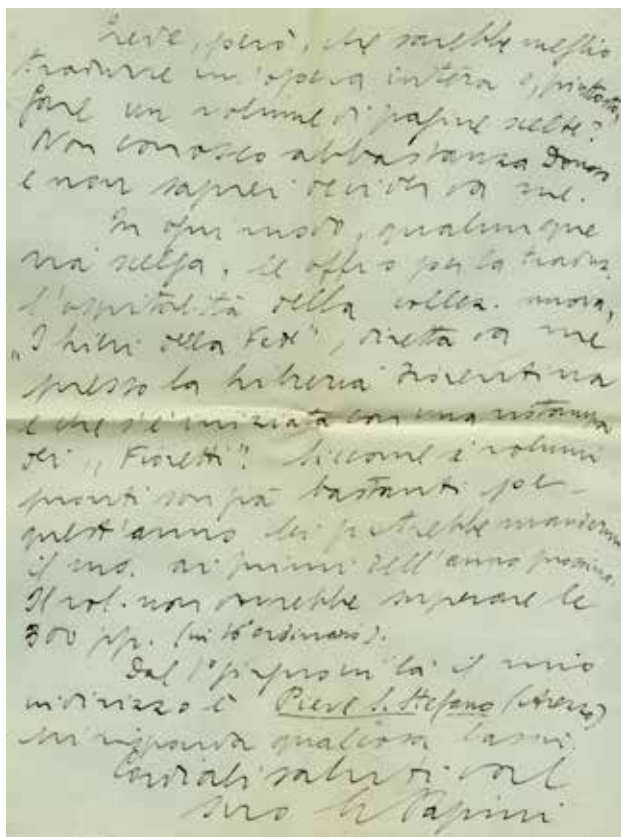 Crede, però, che sarebbe meglio
tradurre un'opera intera o, piuttosto,
fare un volume di pagine scelte?
Non conosco abbastanza Donoso
e non saprei decider da me.
In ogni modo, qualunque
sia scelga, le offro per la traduz.
l'ospitalità della collez. nuova,
„I libri della Fede", diretta da me
presso la Libreria Fiorentina
e che s'è iniziata con una ristampa
dei „Fioretti". Siccome i volumi
pronti son già bastanti per
quest'anno lei potrebbe mandarmi
il ms. ai primi dell'anno prossimo.
Il vol. non dovrebbe superare le
300 pp. (in 16° ordinario).
Dal 1° giugno in là il mio
indirizzo è Pieve S. Stefano (Arezzo)
mi risponda qualcosa
Cordiali saluti dal
suo G. Papini